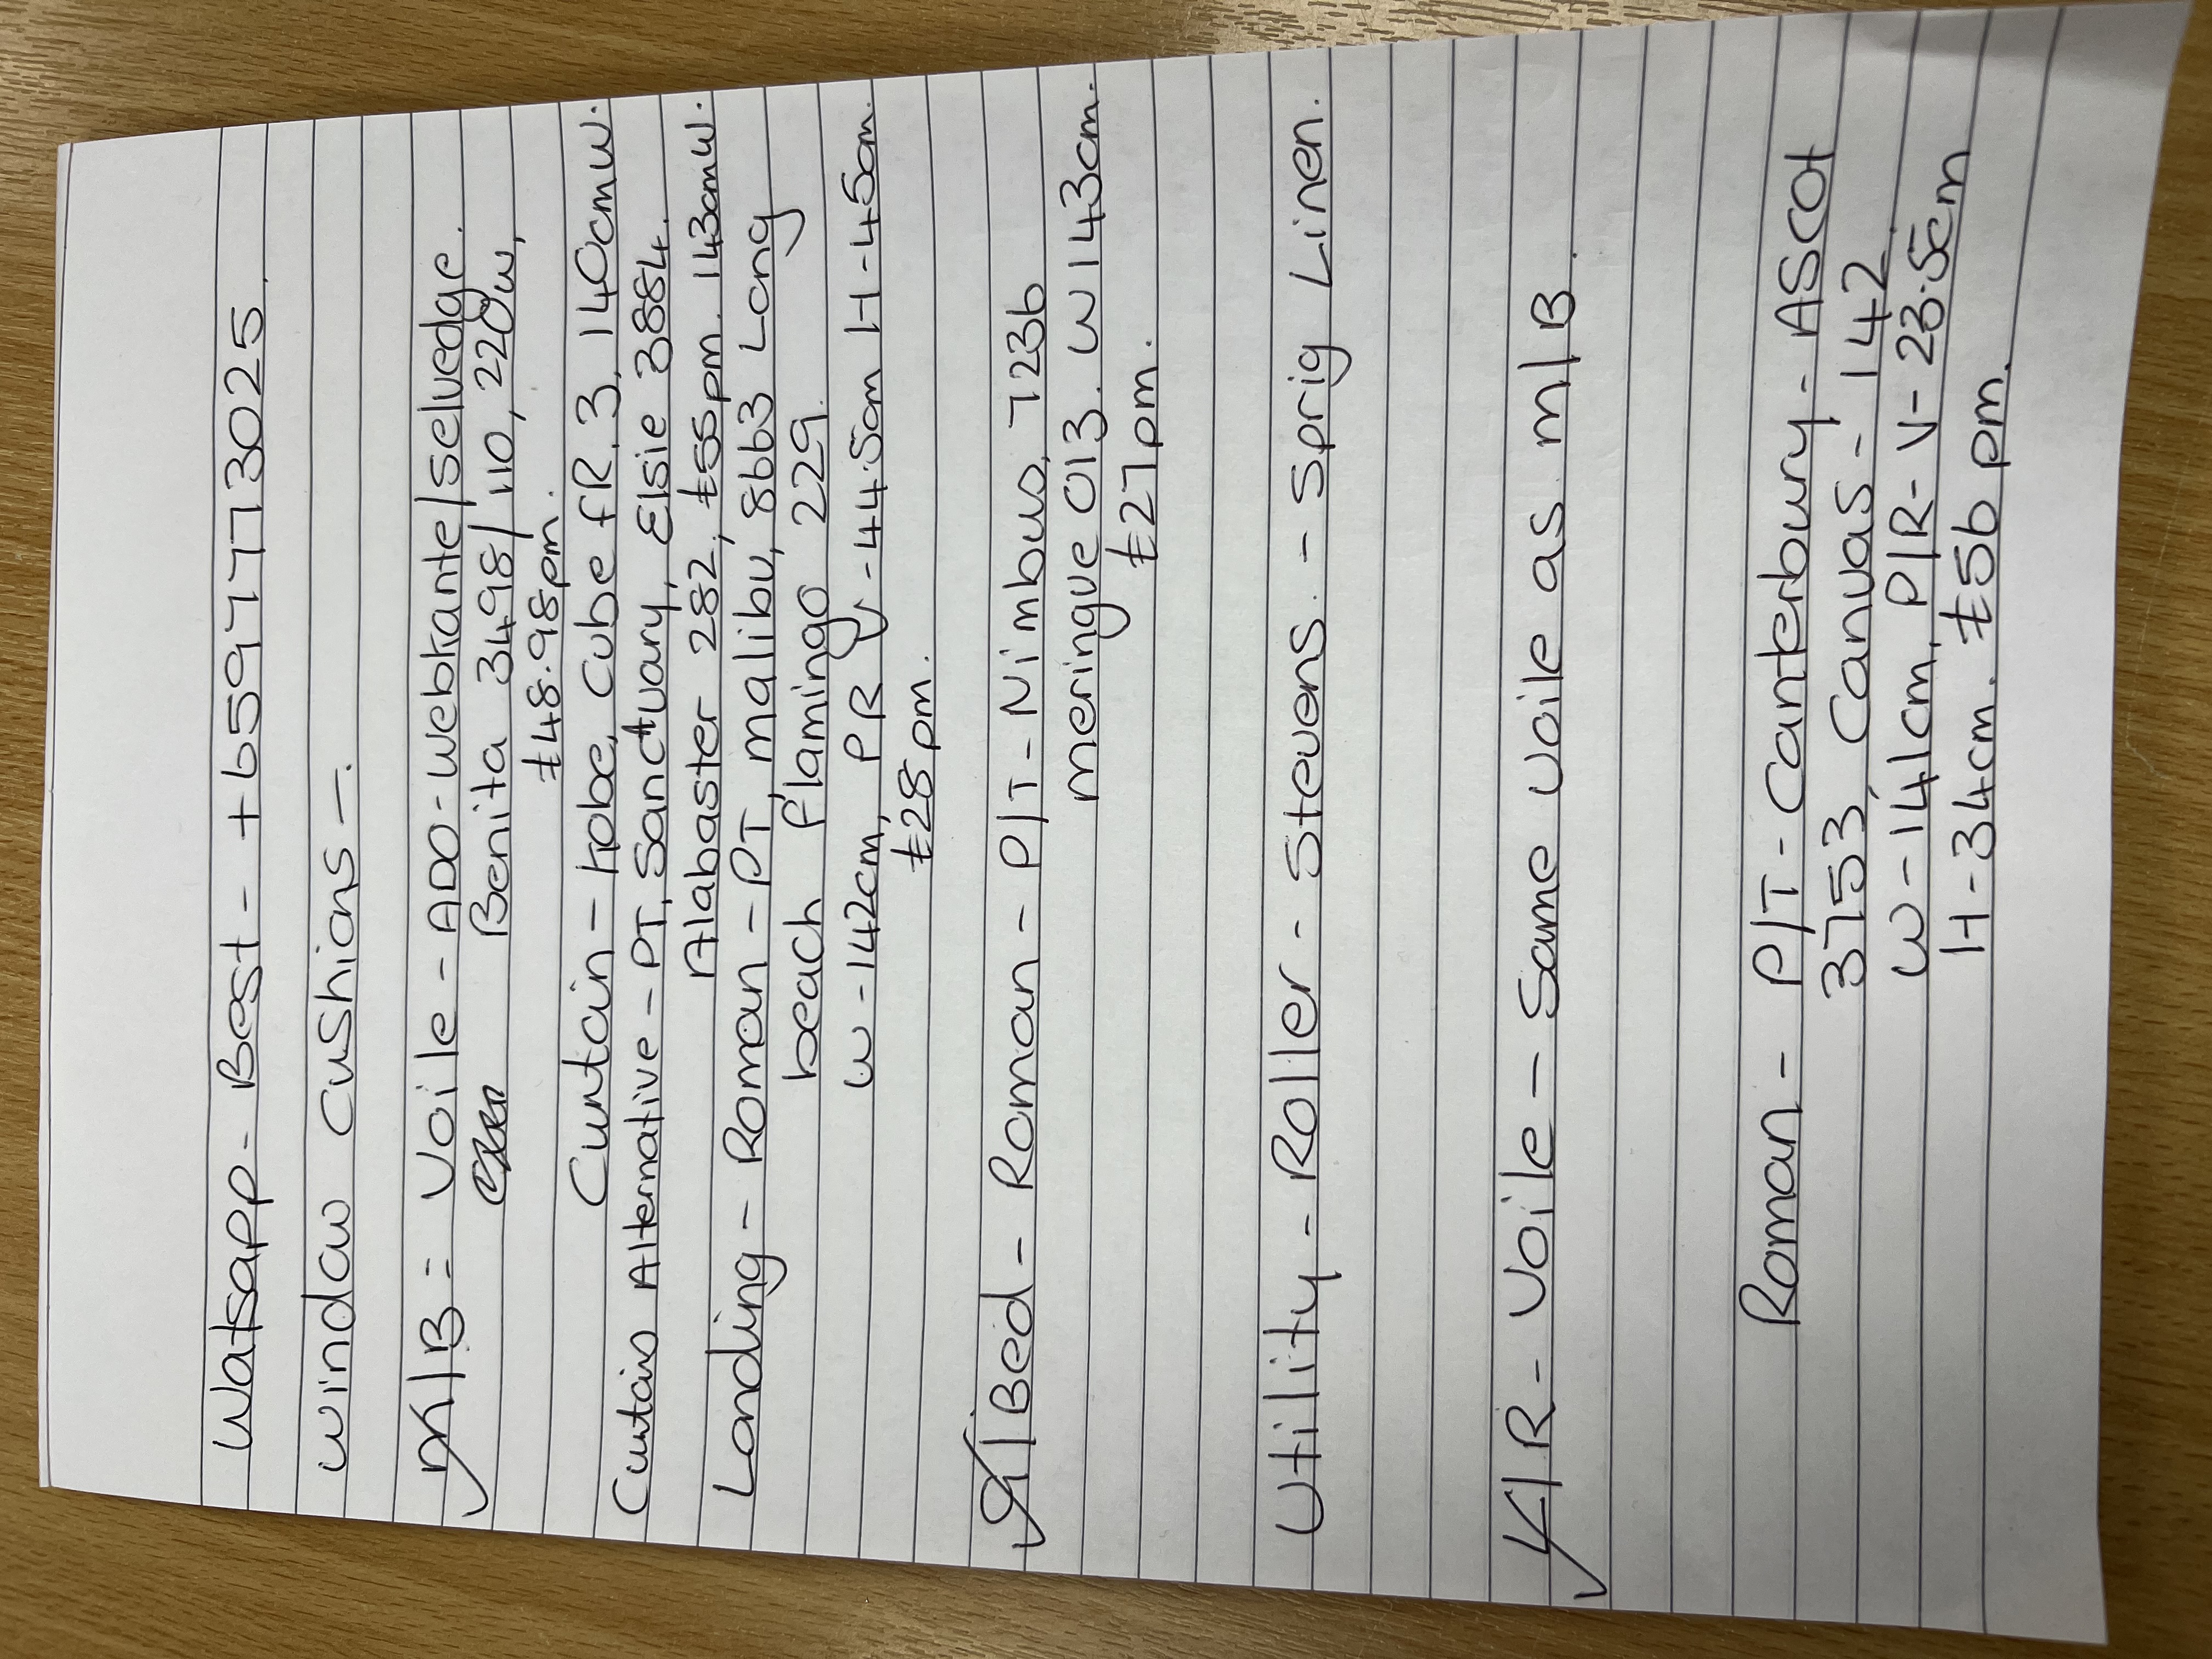 Watsapp - Best - +6597773025.
Window cushions -.
M/B = Voile - ADO - Webkante/selvedge.
Benita 3498/110, 220w,
£48.98pm.
Curtain - hobe, Cube fR.3, 140cmw.
Curtain Alternative - PT, Sanctuary, Elsie 3884.
Alabaster 282, £55pm. 143cmw.
Landing - Roman - PT, malibu, 8663 Long
beach flamingo 229.
W - 142cm, PR V - 44.5cm H - 45cm.
£28pm.
G/Bed - Roman - P/T - Nimbus, 7236
meringue 013. W143cm.
£27pm.
Utility - Roller - Stevens. - Sprig Linen.
L/R - Voile - Same voile as m/B.
Roman - P/T - Canterbury - Ascot
3753 Canvas - 142.
W - 141cm, P/R - V - 23.5cm
H - 34cm. £56pm.